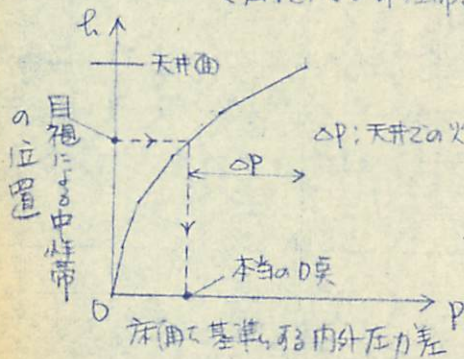 h
天井面
目視による中性帯
の位置
ΔP:天井での
ΔP
本当の0点
O
P
床面を基準とする内外圧力差